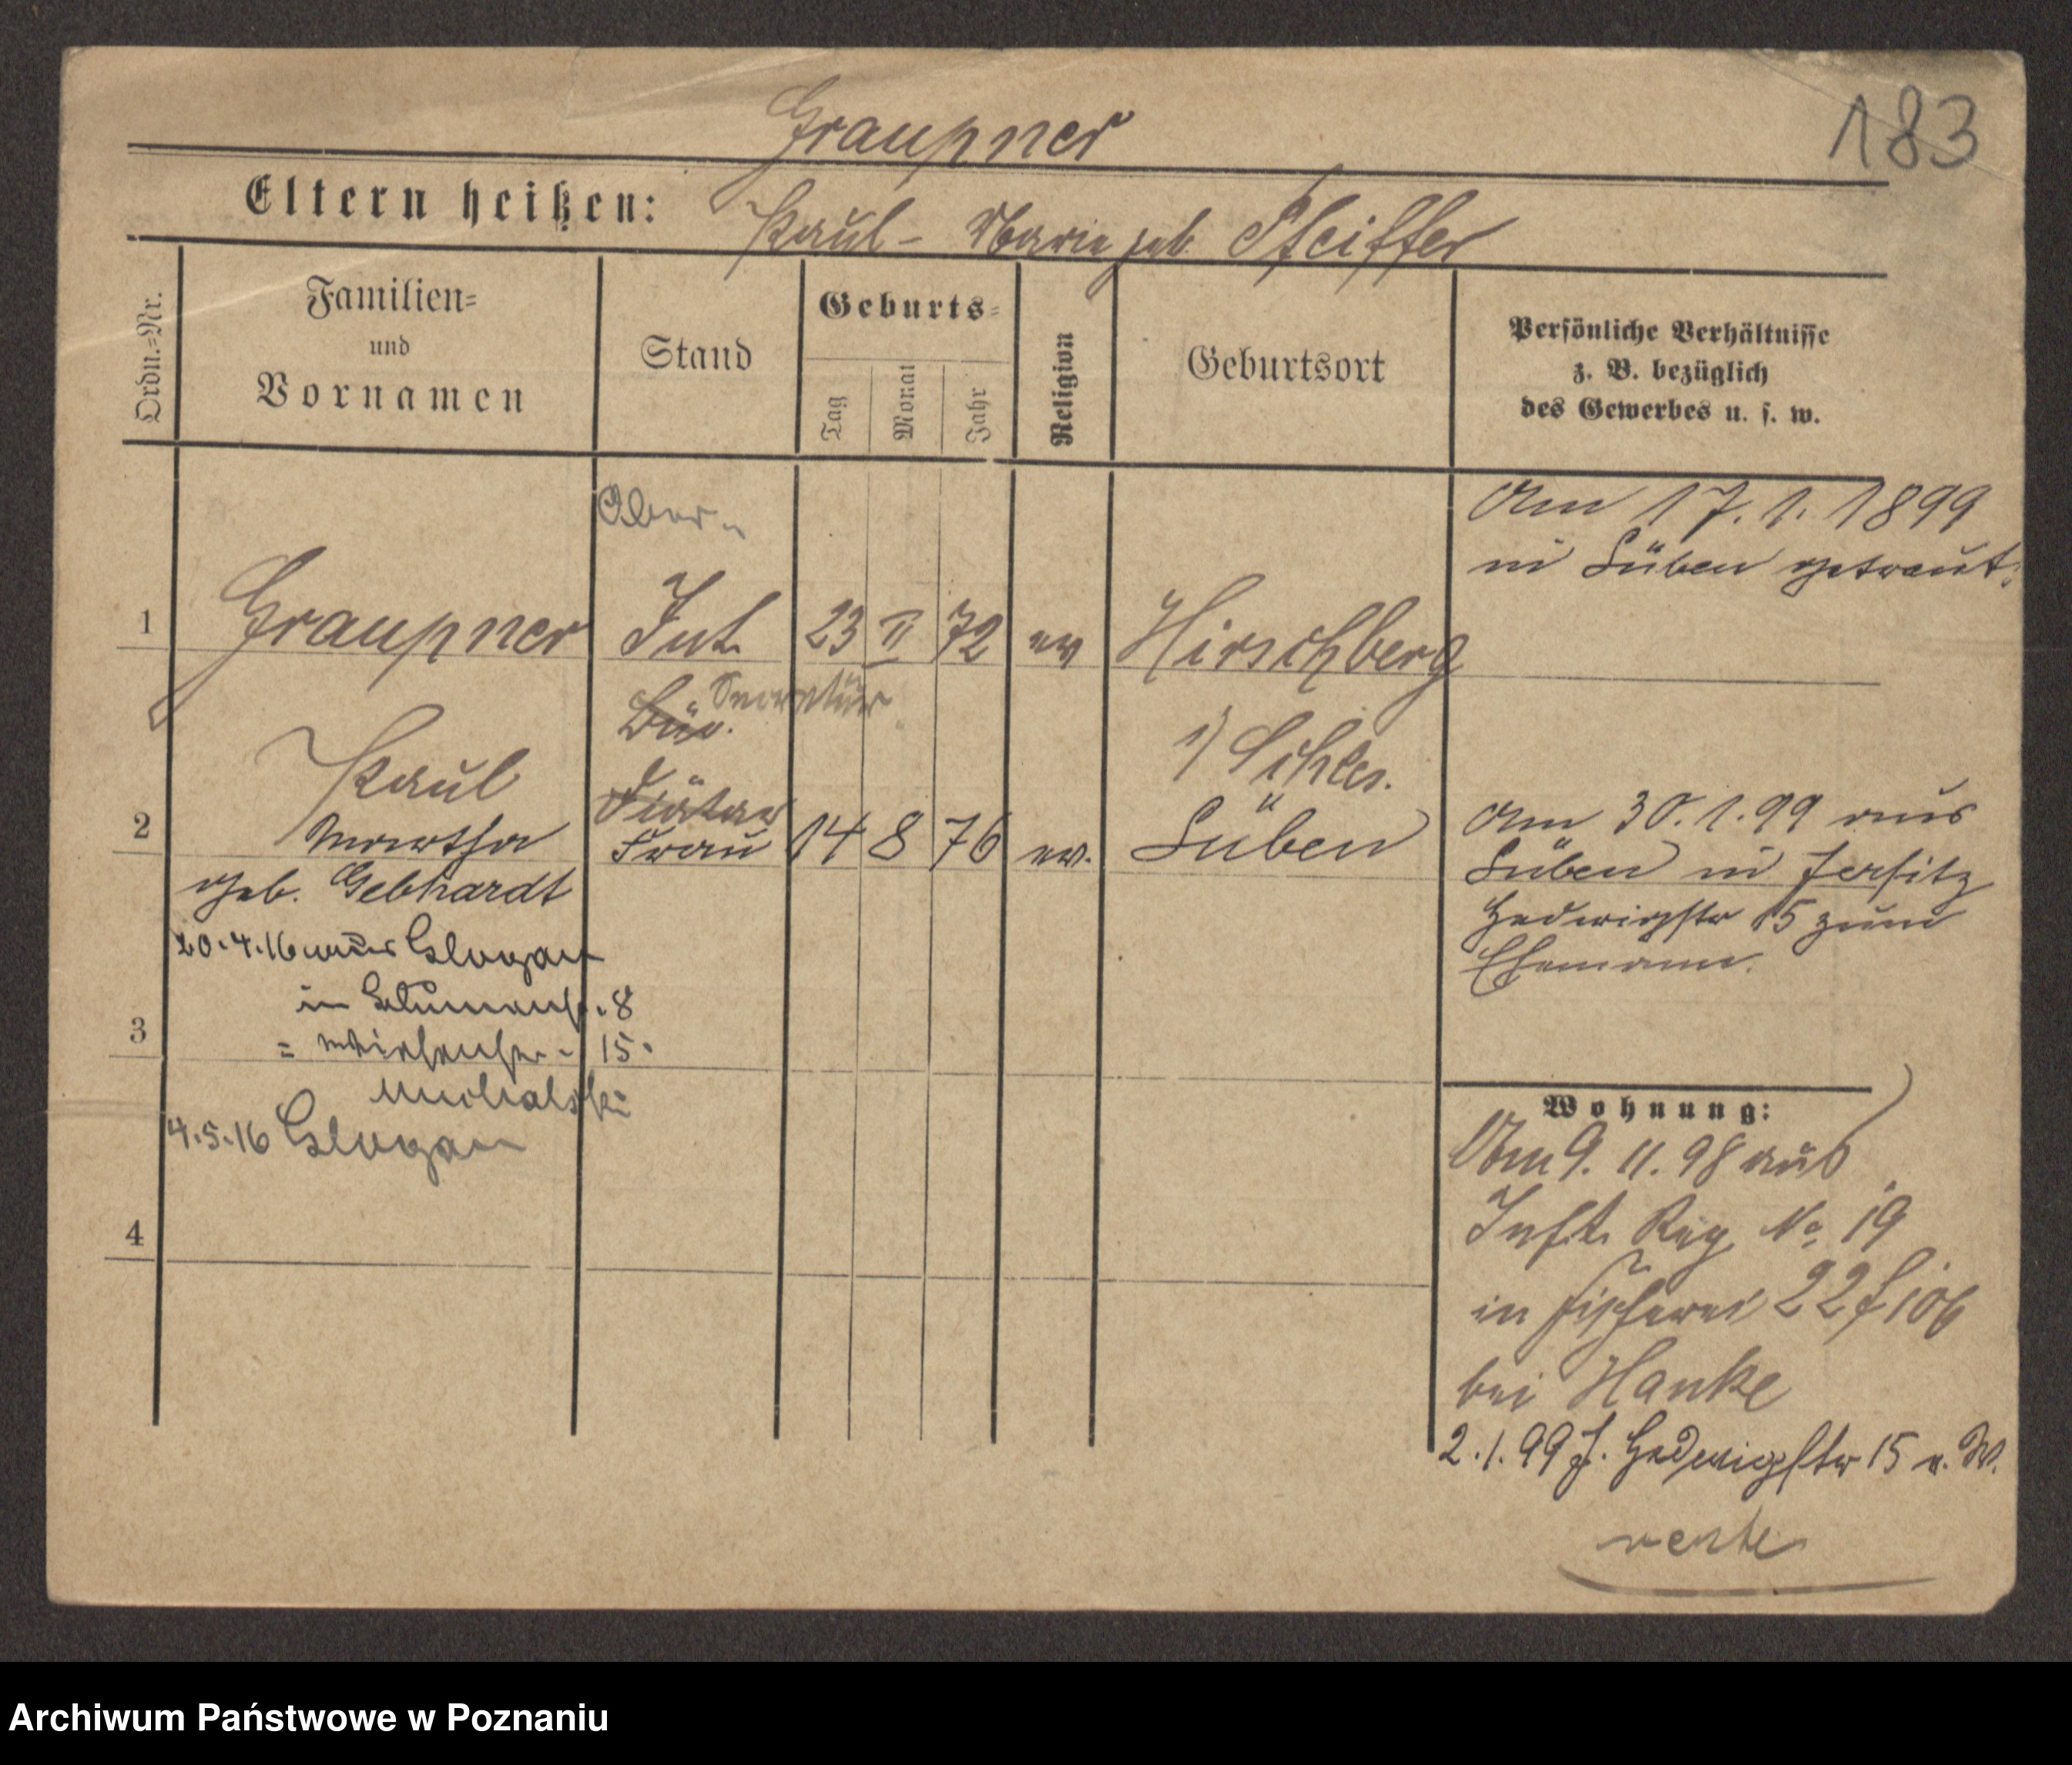 183
Graupner
Eltern heißen: Paul - Marie geb. Pfeiffer
Ordn.=Nr.
Familien=
und
Vornamen
Stand
Geburts=
Tag
Monat
Jahr
Religion
Geburtsort
Persönliche Verhältnisse
z. B. bezüglich
des Gewerbes u. s. w.
Ober-
Am 17. 1. 1899
in Lüben getraut.
1 Graupner Int. 23 II 72 ev Hirschberg
Secretär
Bür.
i/ Schles.
Paul
Diätar
2 Martha Frau 14 8 76 ev. Lüben
geb. Gebhardt
Am 30. 1. 99 aus
Lüben in Jersitz
Hedwigstr 15 zum
Ehemann.
20.4.16 aus Glogau
in Blumenstr. 8
3
= 15.
Michalski
4.5.16 Glogau
4
Wohnung:
Am 9. 11. 98 aus
Inft. Reg. No. 19
in Fischerei 22
bei Hanke
2.1.99 J. Hedwigstr 15 e. W.